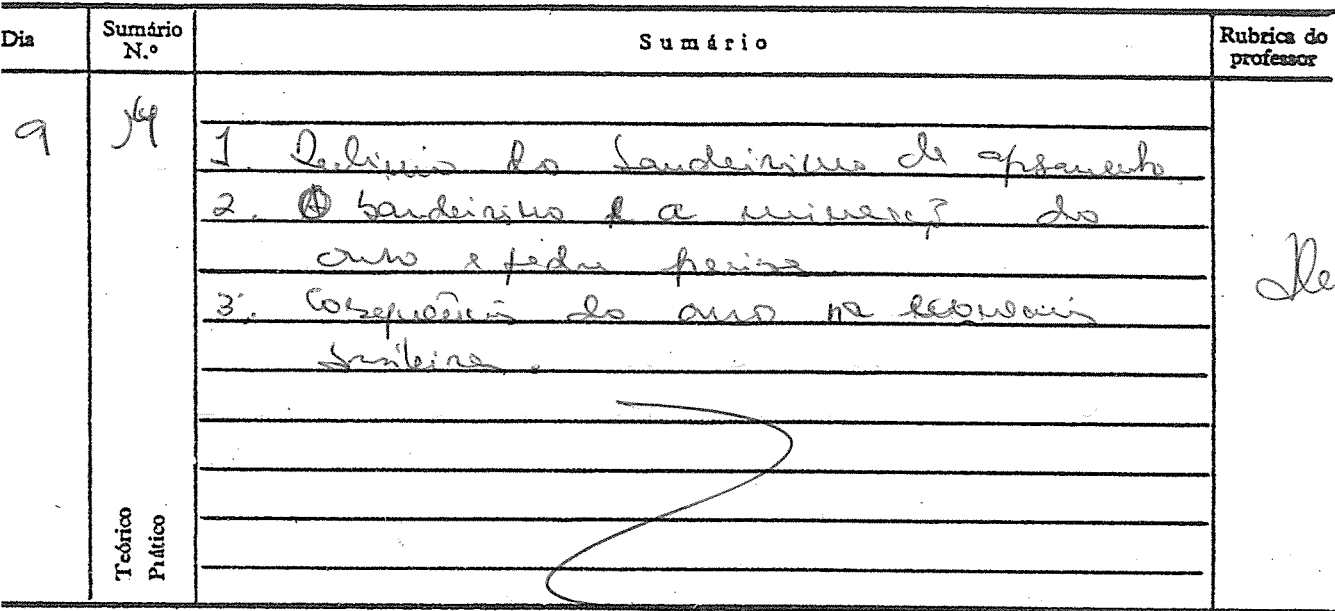 Dia Sumário N.º Sumário Rubrica do professor
9
1. Declínio do bandeirismo de apresamento.
2. O bandeirismo e a mineraç. do
ouro e pedra preciosa
3. Consequências do ouro na economia
brasileira.
Teórico
Prático